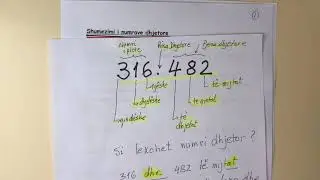 Shumezimi i numrave dhjetore
Numri i plote Pika Dhjetore Pjesa dhjetore
316.482
njëshe të mijtat
dhjetëshe të qindtat
qindëshe të dhjetat
Si lexohet numri dhjetor?
316 dhe 482 të mijtat